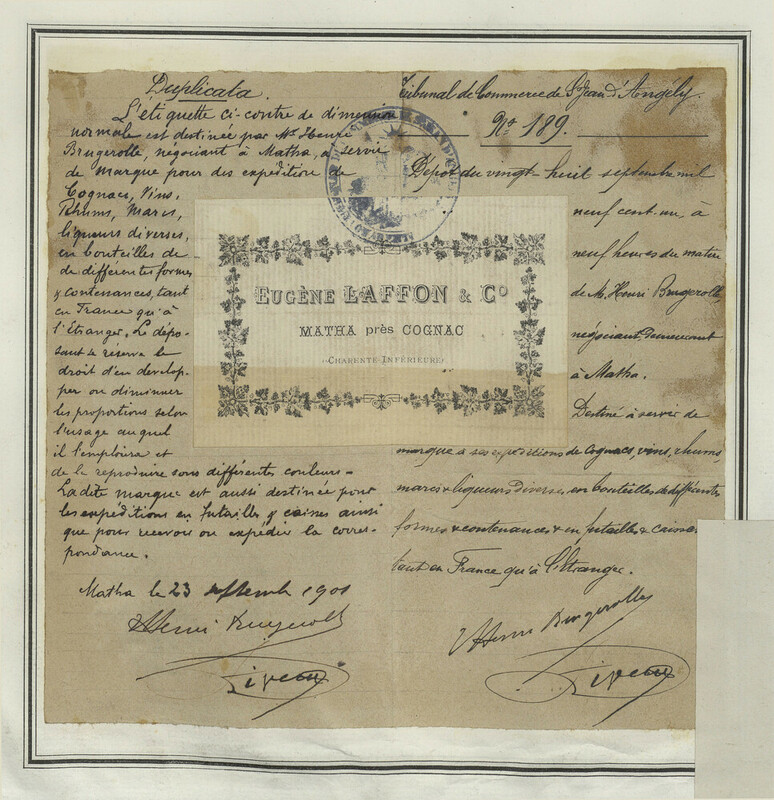 Duplicata.
L'étiquette ci-contre de dimension
normale est destinée par Mr Henri
Brugerolle, négociant à Matha, à servir
de marque pour des expédition de
Cognacs, Vins,
Rhums, Marcs,
liqueurs diverses,
en bouteilles de
de différentes formes
& contenances, tant
en France qu'à
l'Etranger. Le dépo-
sant se réserve le
droit d'en dévelop-
per ou diminuer
les proportions selon
l'usage auquel
il l'emploiera et
de la reproduire sous différentes couleurs -
Ladite marque est aussi destinée pour
les expéditions en futailles & caisses ainsi
que pour recevoir ou expédier la corres-
pondance.
Matha le 23 septembre 1901
Henri Brugerolle
EUGÈNE LAFFON & Co
MATHA près COGNAC
(CHARENTE INFÉRIEURE)
Tribunal de Commerce de St Jean d'Angély.
No 189.
Dépôt du vingt-huit septembre mil
neuf cent-un, à
neuf heures du matin
de M. Henri Brugerolle,
négociant, demeurant
à Matha.
Destiné à servir de
marque à ses expéditions de cognacs, vins, rhums,
marcs & liqueurs diverses, en bouteilles de différentes
formes & contenances & en futailles & caisses
tant en France qu'à l'étranger.
Henri Brugerolle